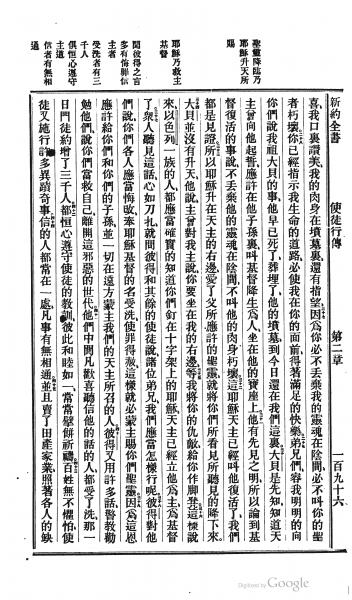 新約全書 使徒行傳 第二章 一百九十六
聖靈降臨乃
耶穌升天所
賜
耶穌乃救主
基督
聞彼得之言
多有悔罪信
主者
受洗者有三
千人
俱恆心遵守
主道
信者有無相
通
喜我口裏讚美我的肉身在墳墓裏還有指望因爲你必不丟棄我的靈魂在陰間必不叫你的聖
者朽壞你已經指示我生命的道路必使我在你的面前得著滿足的快樂弟兄們容我明明的向
你們說我祖大貝的事他早已死了葬埋了他的墳墓到今日還在我們這裏大貝是先知知道天
主曾向他起誓應許在他子孫裏叫基督降生爲人坐在他的寶座上他有先見之明所以論到基
督復活的事說不丟棄他的靈魂在陰間不叫他的肉身朽壞這耶穌天主已經叫他復活了我們
都是見證所以耶穌升在天主的右邊受了父所應許的聖靈就將你們所看見所聽見的降下來
大貝並沒有升天他說主曾對我主說你要坐在我的右邊等我將你的仇敵給你作腳凳這樣說
來以色列一族的人都應當確實的知道你們釘在十字架上的耶穌天主已經立他爲主爲基督
了衆人聽見這話心如刀扎就問彼得和其餘的使徒說諸位弟兄我們應當怎樣行呢彼得對他
們說你們各人應當悔改奉耶穌基督的名受洗使罪得赦這樣就必蒙主賜你們聖靈因爲這恩
應許給你們和你們的子孫並一切在遠方蒙主我們的天主所召的人彼得又用許多話警敎勸
勉他們說你們當救自己離開這邪惡的世代他們中間凡歡喜聽信他的話的人都受了洗那一
日門徒約增了三千人都恆心遵守使徒的敎訓彼此和睦如一常常擘餅祈禱百姓無不懼怕使
徒又施行許多異蹟奇事信的人都常在一處凡事有無相通並且賣了田產家業照著各人的缺
Digitized by Google